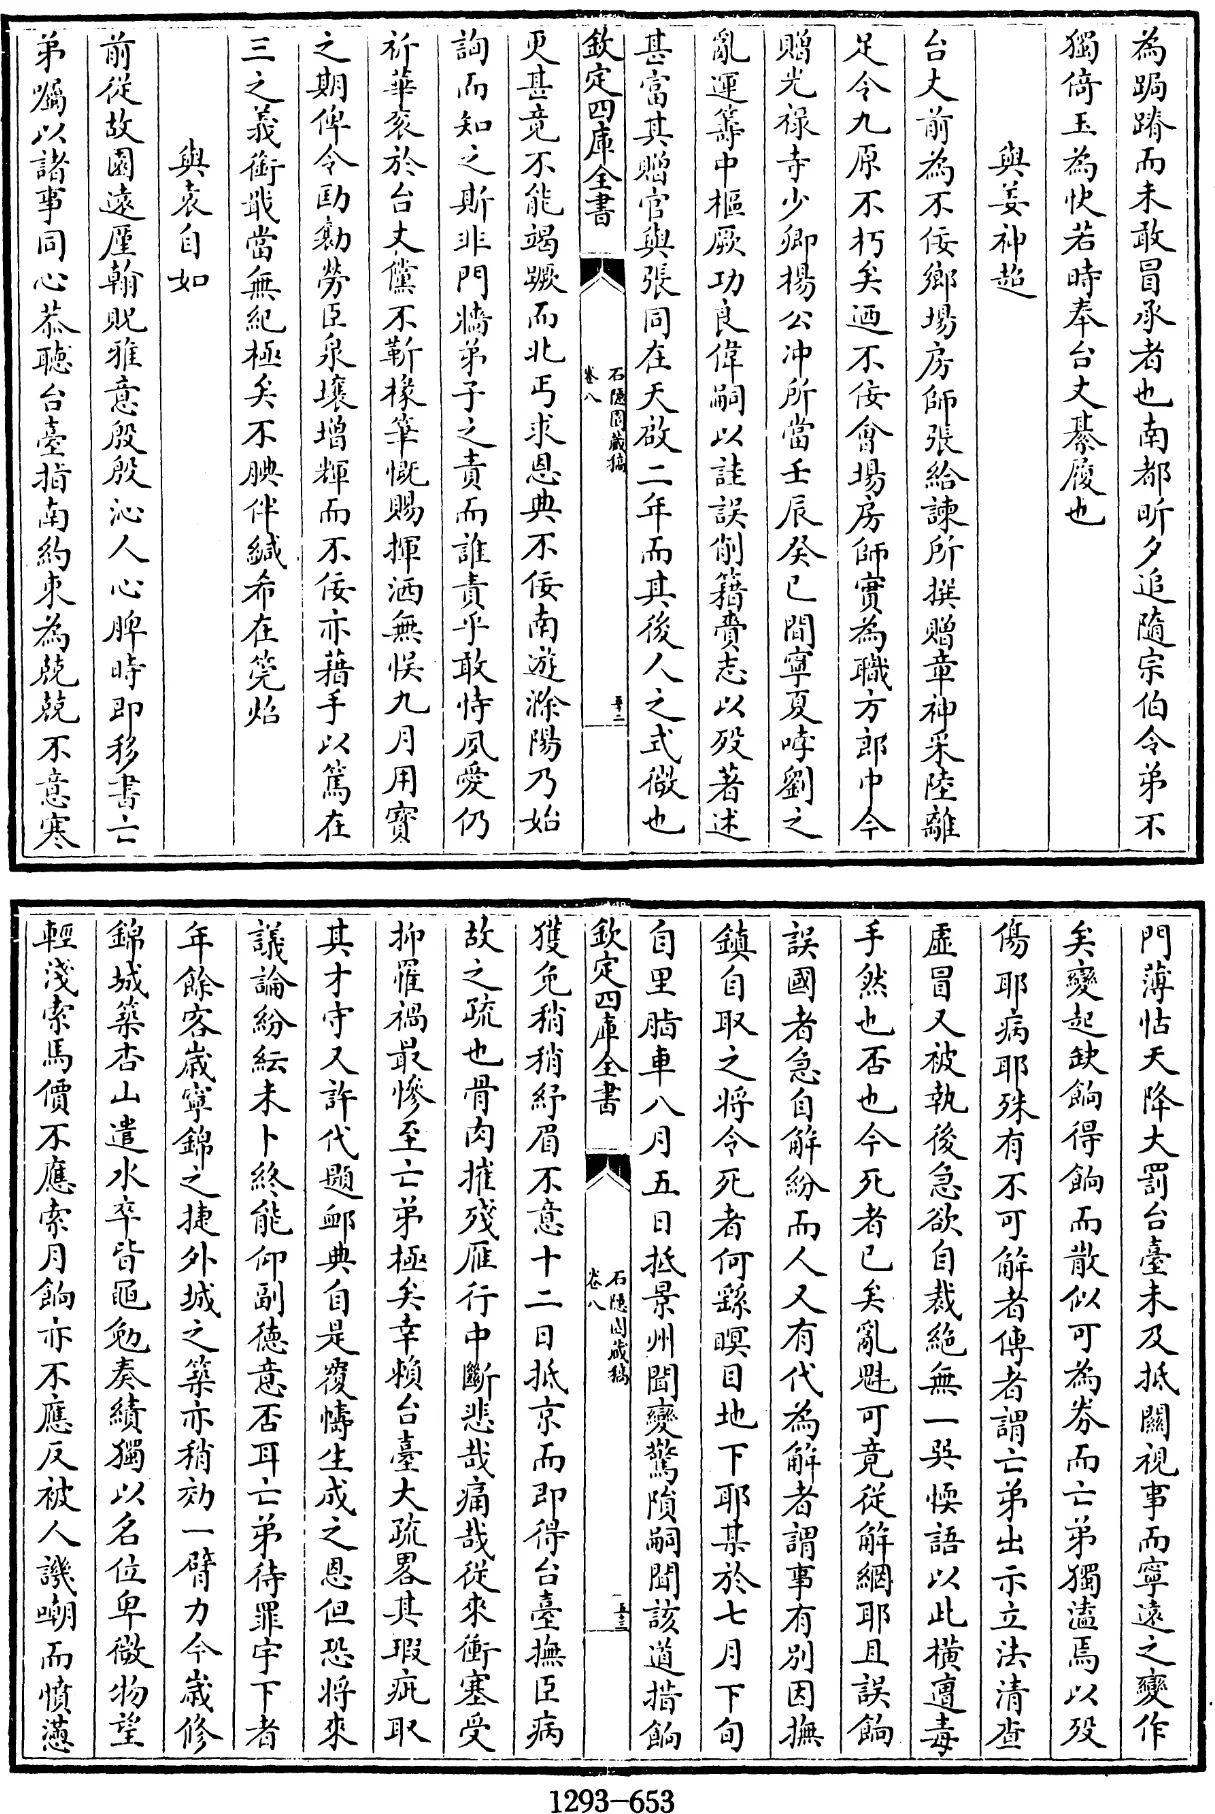 為跼蹐而未敢冒承者也南都昕夕追隨宗伯令弟不
獨倚玉為快若時奉台丈綦履也
與姜神超
台丈前為不佞鄉場房師張給諫所撰贈章神采陸離
足令九原不朽矣迺不佞會場房師實為職方郎中今
贈光祿寺少卿楊公冲所當壬辰癸巳間寧夏哱劉之
亂運籌中樞厥功良偉嗣以註誤削籍賫志以殁著述
甚富其贈官與張同在天啟二年而其後人之式微也
欽定四庫全書
石隱園藏稿
卷八
五十二
更甚竟不能竭蹶而北丐求恩典不佞南遊滁陽乃始
詢而知之斯非門牆弟子之責而誰責乎敢恃夙愛仍
祈華衮於台丈儻不靳椽筆慨賜揮洒無悮九月用寳
之期俾令劻勷勞臣泉壤增輝而不佞亦藉手以篤在
三之義銜戢當無紀極矣不腆伴緘希在筦炤
與袁自如
前從故園遠厪翰貺雅意殷殷沁人心脾時即移書亡
弟囑以諸事同心恭聽台臺指南約束為兢兢不意寒
門薄怙天降大罰台臺未及抵關視事而寧遠之變作
矣變起缺餉得餉而散似可為劵而亡弟獨溘焉以殁
傷耶病耶殊有不可解者傳者謂亡弟出示立法清查
虛冒又被執後急欲自裁絶無一巽愞語以此橫遭毒
手然也否也今死者已矣亂魁可竟從解網耶且誤餉
誤國者急自解紛而人又有代為解者謂事有别因撫
鎮自取之將令死者何繇瞑目地下耶某於七月下旬
自里脂車八月五日抵景州聞變驚隕嗣聞該道措餉
欽定四庫全書
石隱園藏稿
卷八
五十三
獲免稍稍紓眉不意十二日抵京而即得台臺撫臣病
故之疏也骨肉摧殘雁行中斷悲哉痛哉從來衝塞受
抑罹禍最慘至亡弟極矣幸賴台臺大疏畧其瑕疵取
其才守又許代題䘏典自是覆幬生成之恩但恐將來
議論紛紜未卜終能仰副德意否耳亡弟待罪宇下者
年餘客嵗寧錦之捷外城之築亦稍効一臂力今嵗修
錦城築杏山遣水卒皆黽勉奏績獨以名位卑微物望
輕淺索馬價不應索月餉亦不應反被人譏嘲而憤懣
1293-653